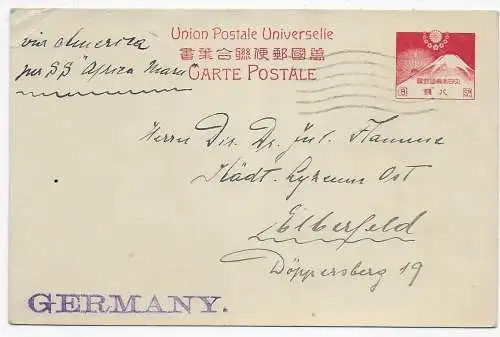 via America
per S.S. "Africa Maru"
Union Postale Universelle
萬國郵便聯合葉書
CARTE POSTALE
Herrn Dir. Dr. Jul. Flamme
Städt. Lyzeum Ost
Elberfeld
Döppersberg 19
GERMANY.